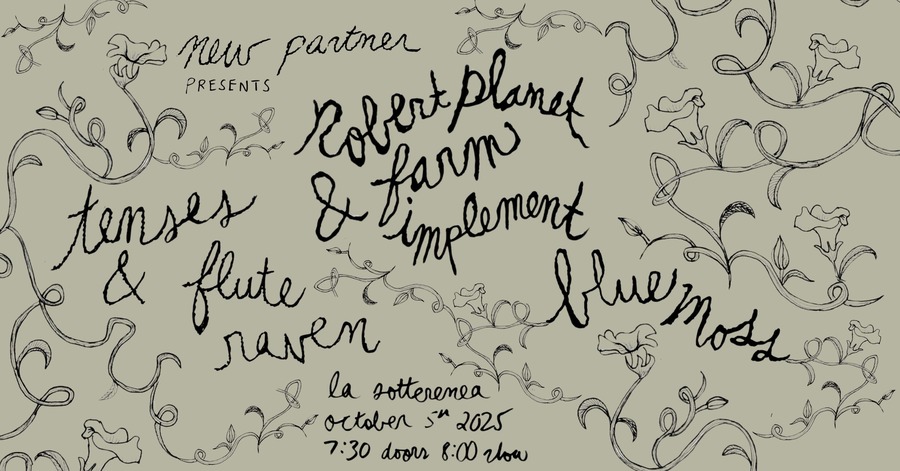 new partner
PRESENTS
Robert planet
& farm
implement
tenses
& flute
raven
blue moss
la sotterenea
october 5th 2025
7:30 doors 8:00 show